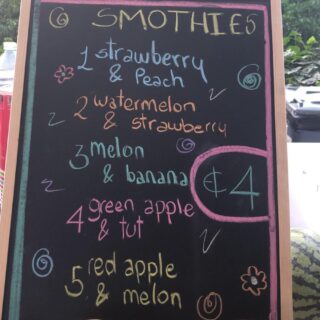 SMOTHIES
1 strawberry
& Peach
2 watermelon
& strawberry
3 melon
& banana
₵4
4 green apple
& tut
5 red apple
& melon